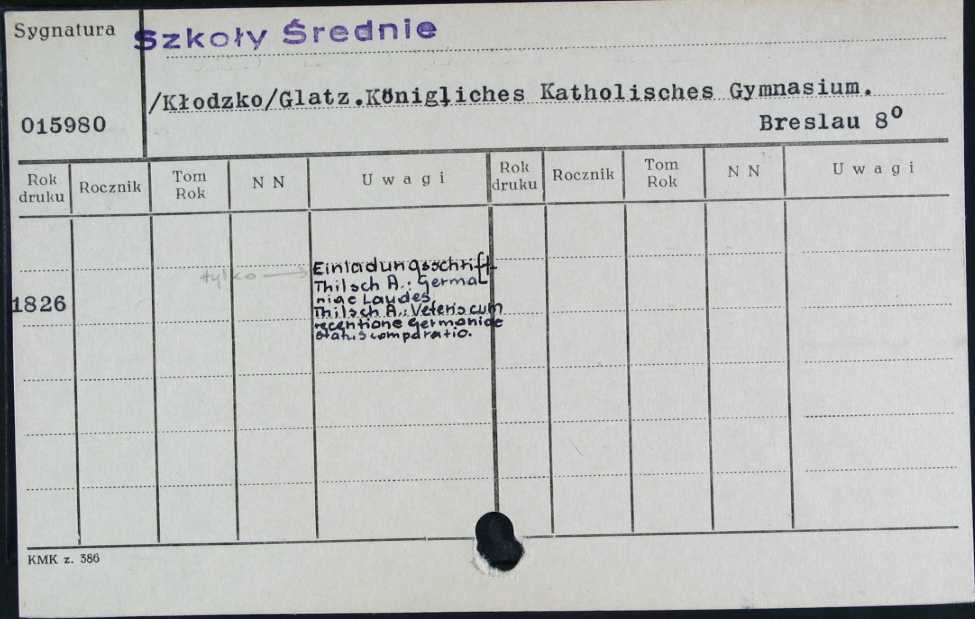 Sygnatura
Szkoły Średnie
/Kłodzko/Glatz.Königliches Katholisches Gymnasium.
015980
Breslau 8⁰
Rok druku Rocznik Tom Rok N N U w a g i Rok druku Rocznik Tom Rok N N U w a g i
tylko → Einladungsschrift
Thilsch A.: Germa
1826
niae Laudes
Thilsch A.: Veteris cum
recentione Germaniae
status comparatio.
KMK z. 386